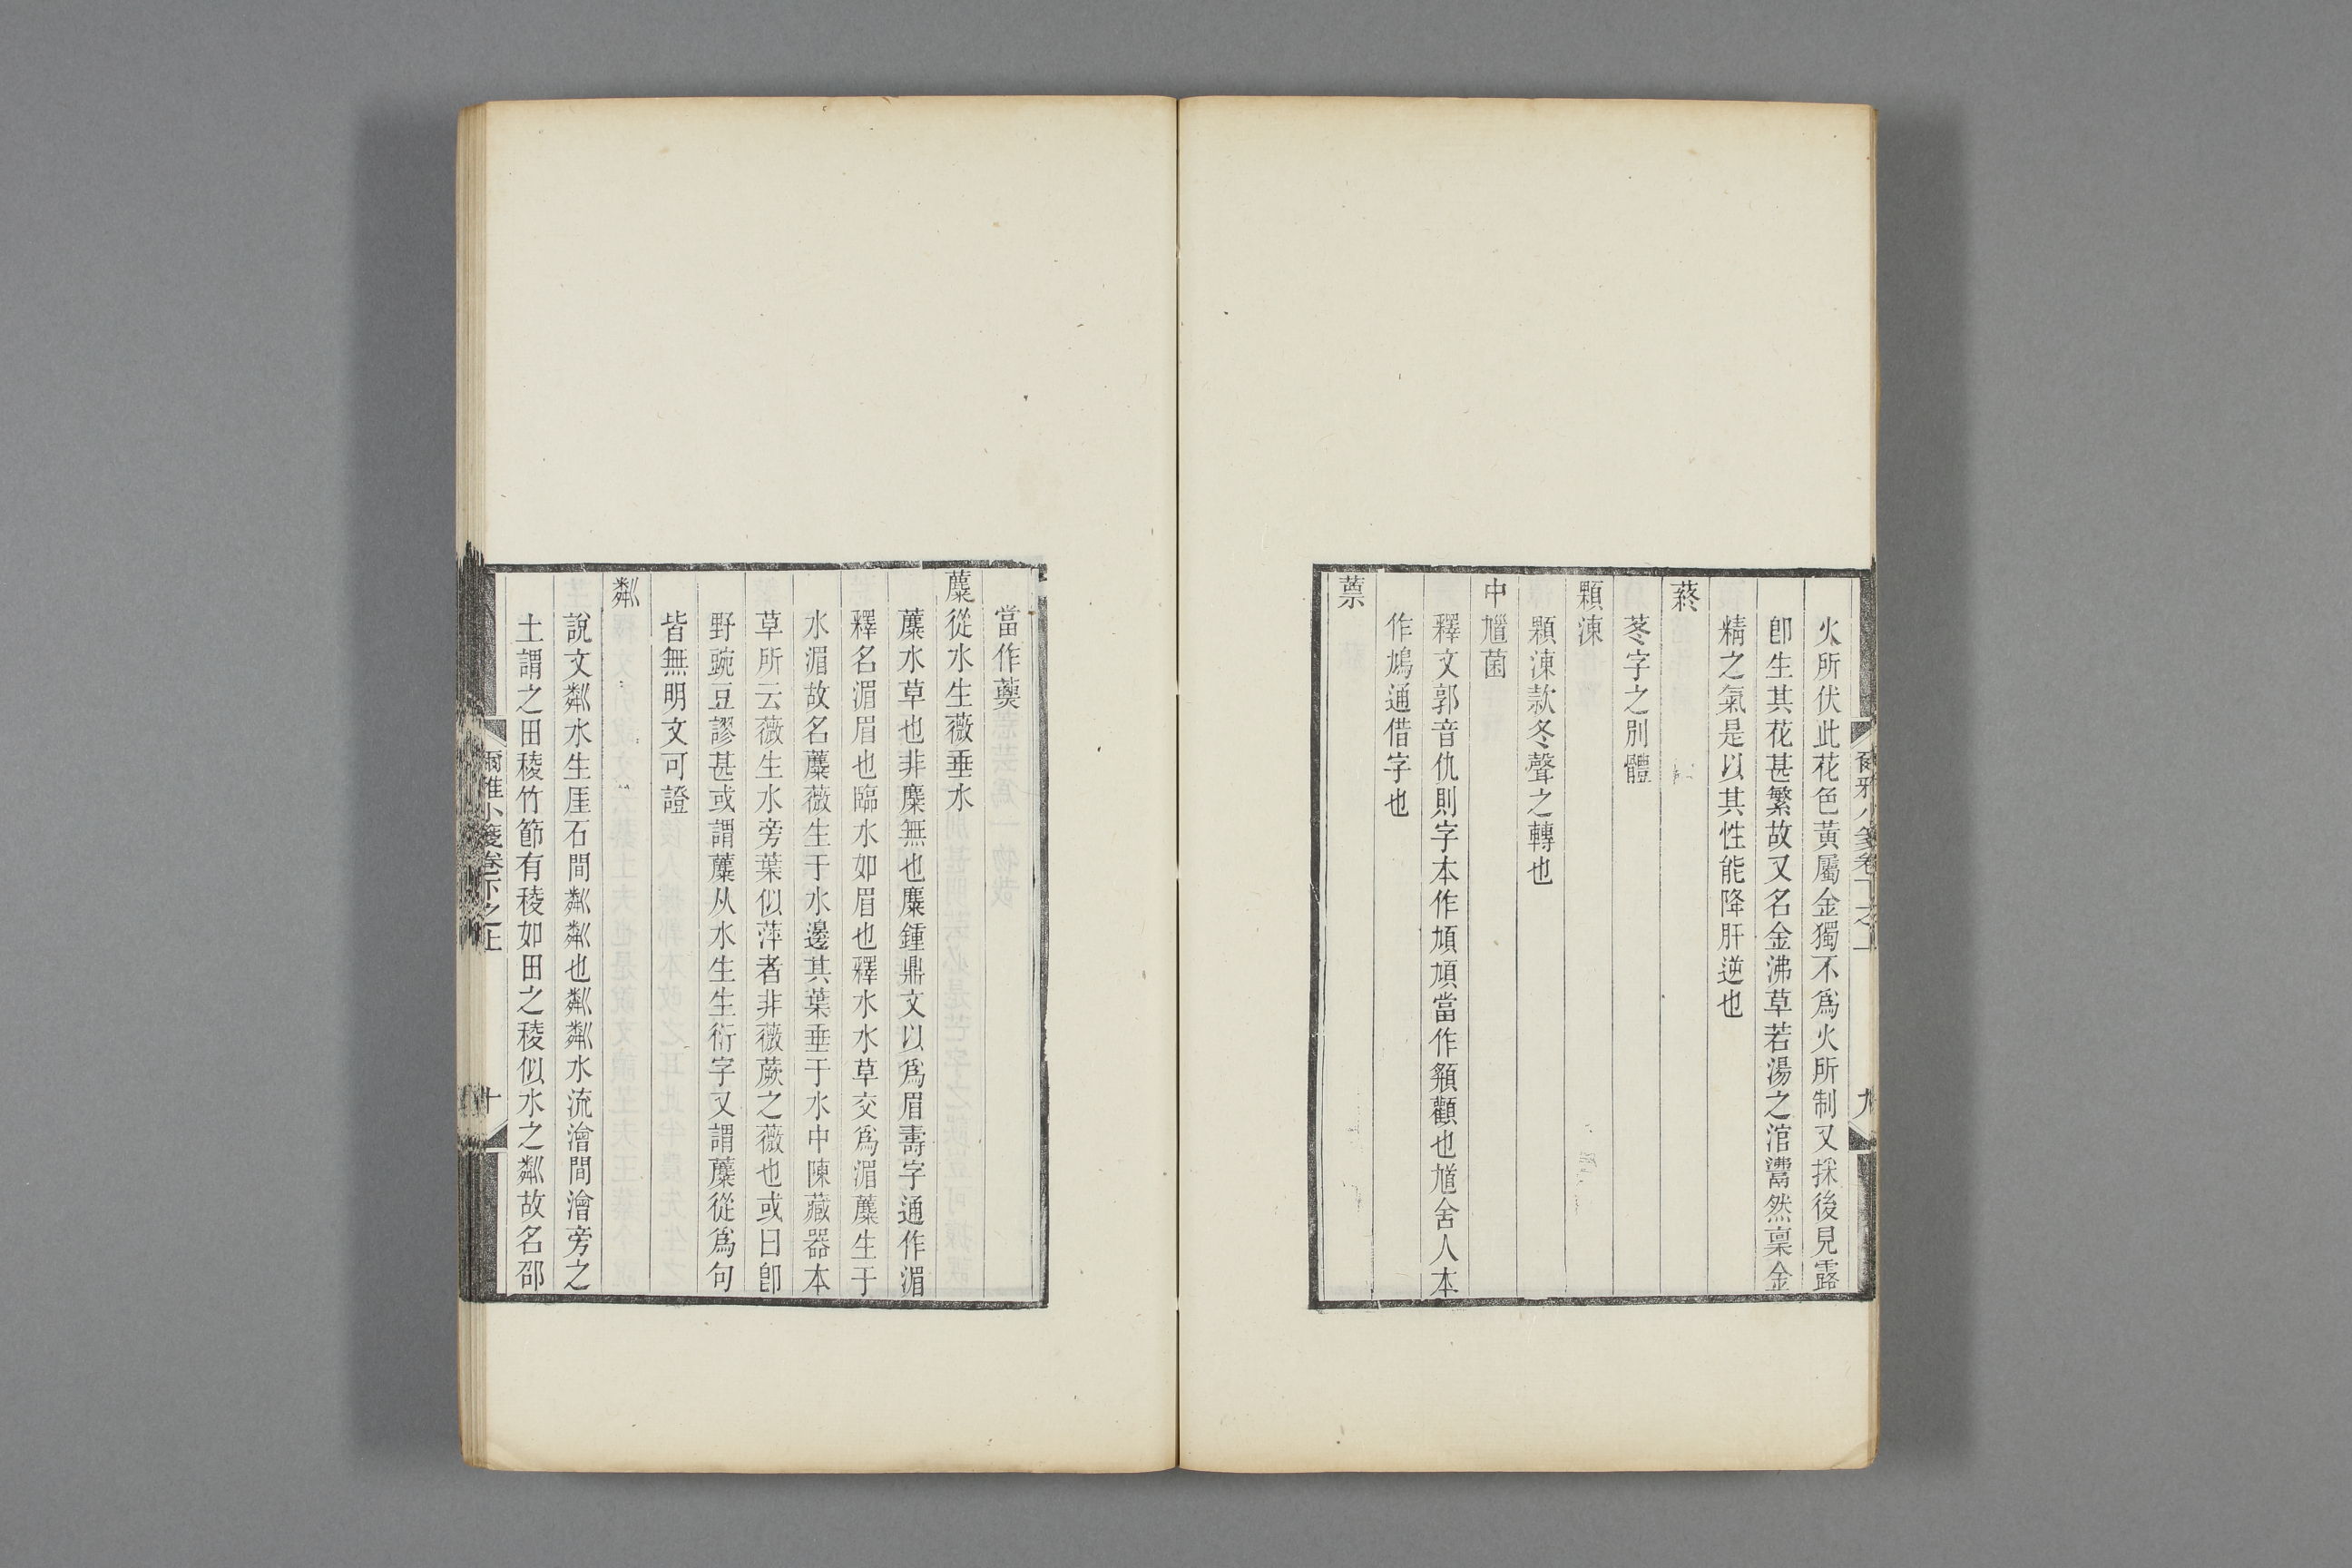 火所伏此花色黃屬金獨不爲火所制又採後見露
卽生其花甚繁故又名金沸草若湯之涫鬻然稟金
精之氣是以其性能降肝逆也
蔠
苳字之別體
顆涷
顆涷款冬聲之轉也
中馗菌
釋文郭音仇則字本作頄頄當作䫌顴也馗舍人本
作鳩通借字也
藨
爾雅小箋卷下之上
九
當作藇
蘪從水生薇垂水
蘪水草也非蘪無也蘪鍾鼎文以爲眉壽字通作湄
釋名湄眉也臨水如眉也釋水水草交爲湄蘪生于
水湄故名蘪薇生于水邊其葉垂于水中陳藏器本
草所云薇生水旁葉似萍者非薇蕨之薇也或曰卽
野豌豆謬甚或謂蘪从水生生衍字又謂蘪從爲句
皆無明文可證
粼
說文粼水生厓石間粼粼也粼粼水流澮間澮旁之
土謂之田稜竹節有稜如田之稜似水之粼故名䂏
爾雅小箋卷下之上
十